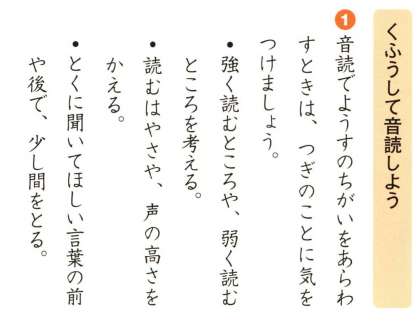 くふうして音読しよう
1 音読でようすのちがいをあらわ
すときは、つぎのことに気を
つけましょう。
• 強く読むところや、弱く読む
ところを考える。
• 読むはやさや、声の高さを
かえる。
• とくに聞いてほしい言葉の前
や後で、少し間をとる。